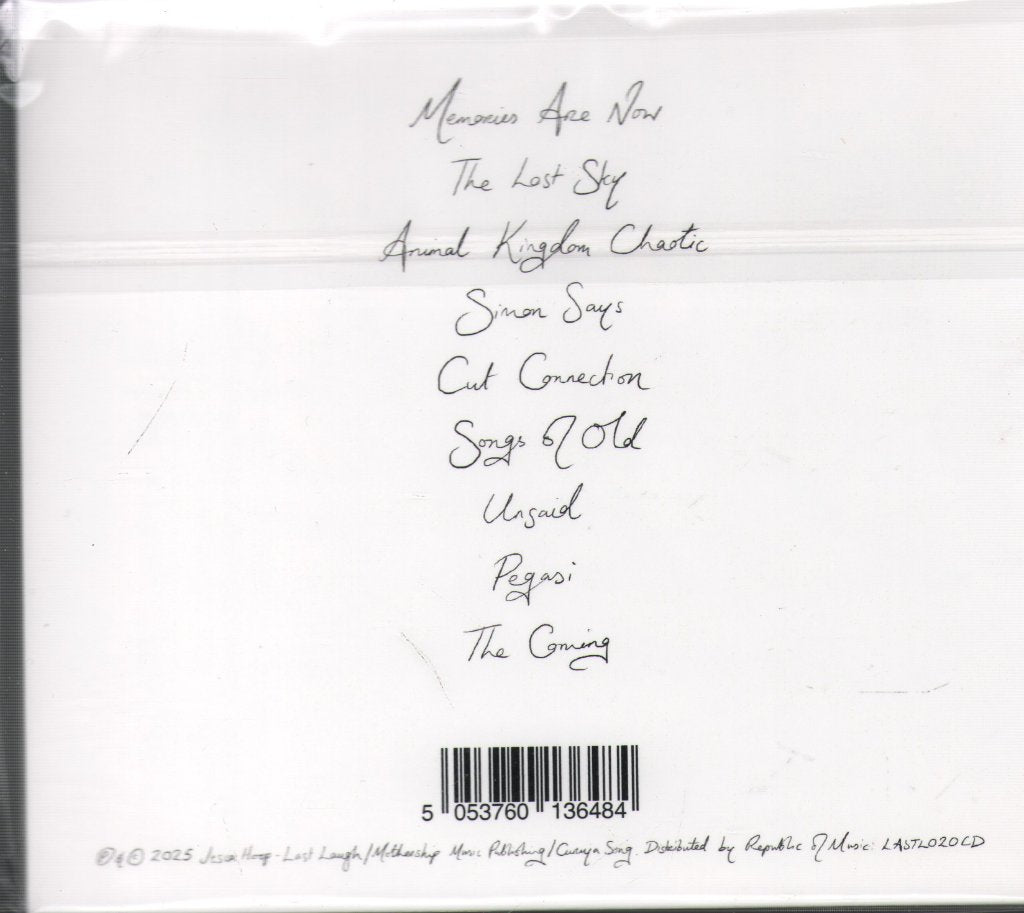 Memories Are Now
The Lost Sky
Animal Kingdom Chaotic
Simon Says
Cut Connection
Songs of Old
Unsaid
Pegasi
The Coming
5 053760 136484
℗ & © 2025 Jesca Hoop - Last Laugh / Mothership Music Publishing / Song. Distributed by Republic of Music: LASTL020CD